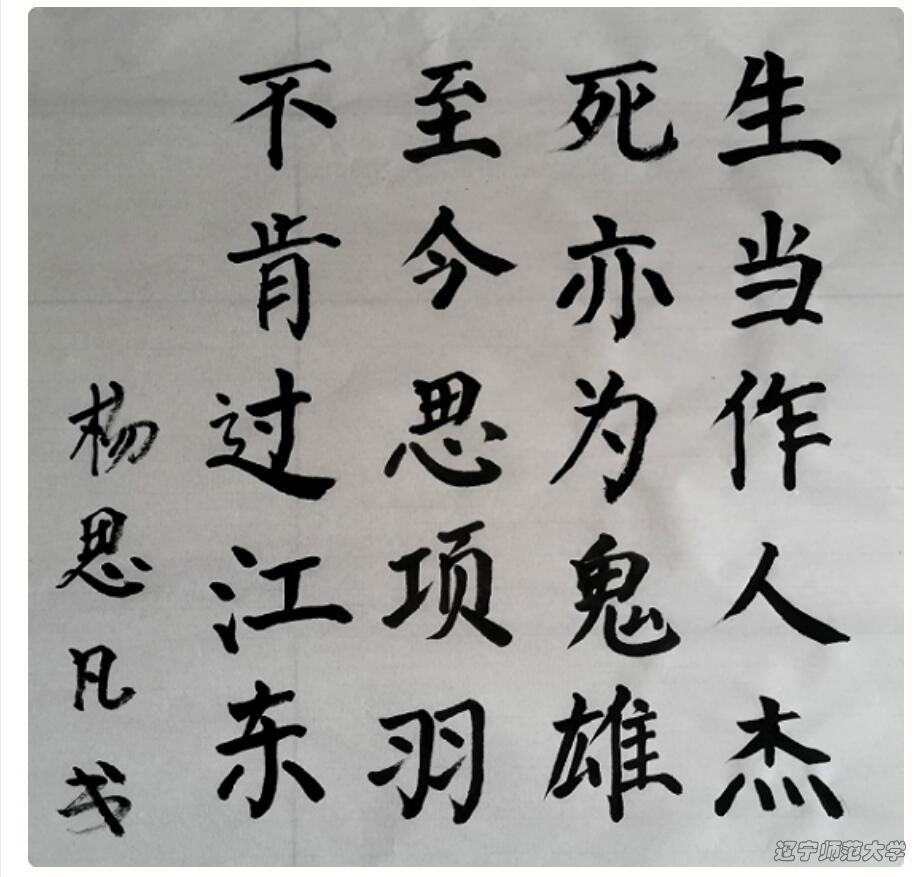 生当作人杰
死亦为鬼雄
至今思项羽
不肯过江东
杨思凡书
辽宁师范大学